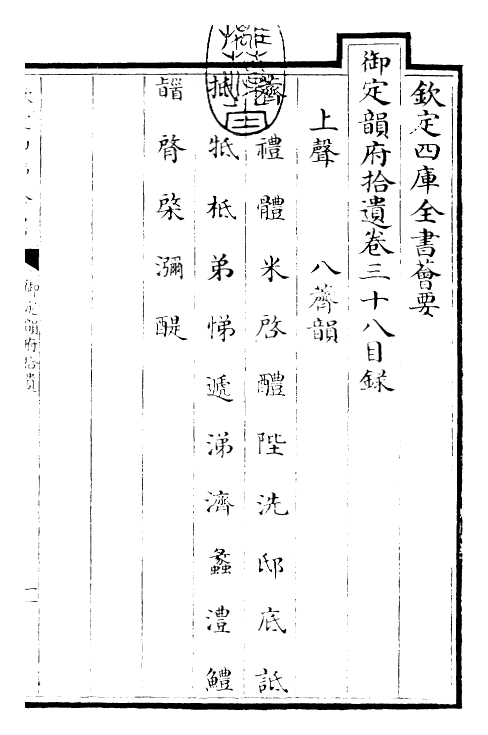 欽定四庫全書薈要
御定韻府拾遺卷三十八目録
上聲 八薺韻
薺 禮 體 米 啓 醴 陛 洗 邸 底 詆
抵 牴 柢 弟 悌 遞 涕 濟 蠡 澧 鱧
䭫 䏿 棨 瀰 醍
御定韻府拾遺
一